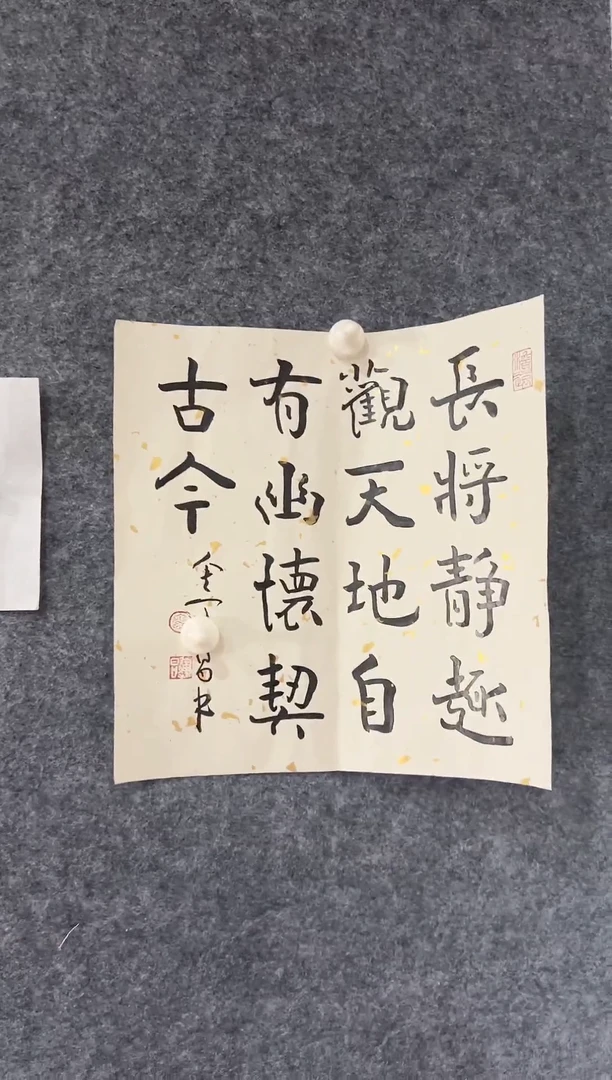 長将静趣
觀天地自
有幽懷契
古今
昌书